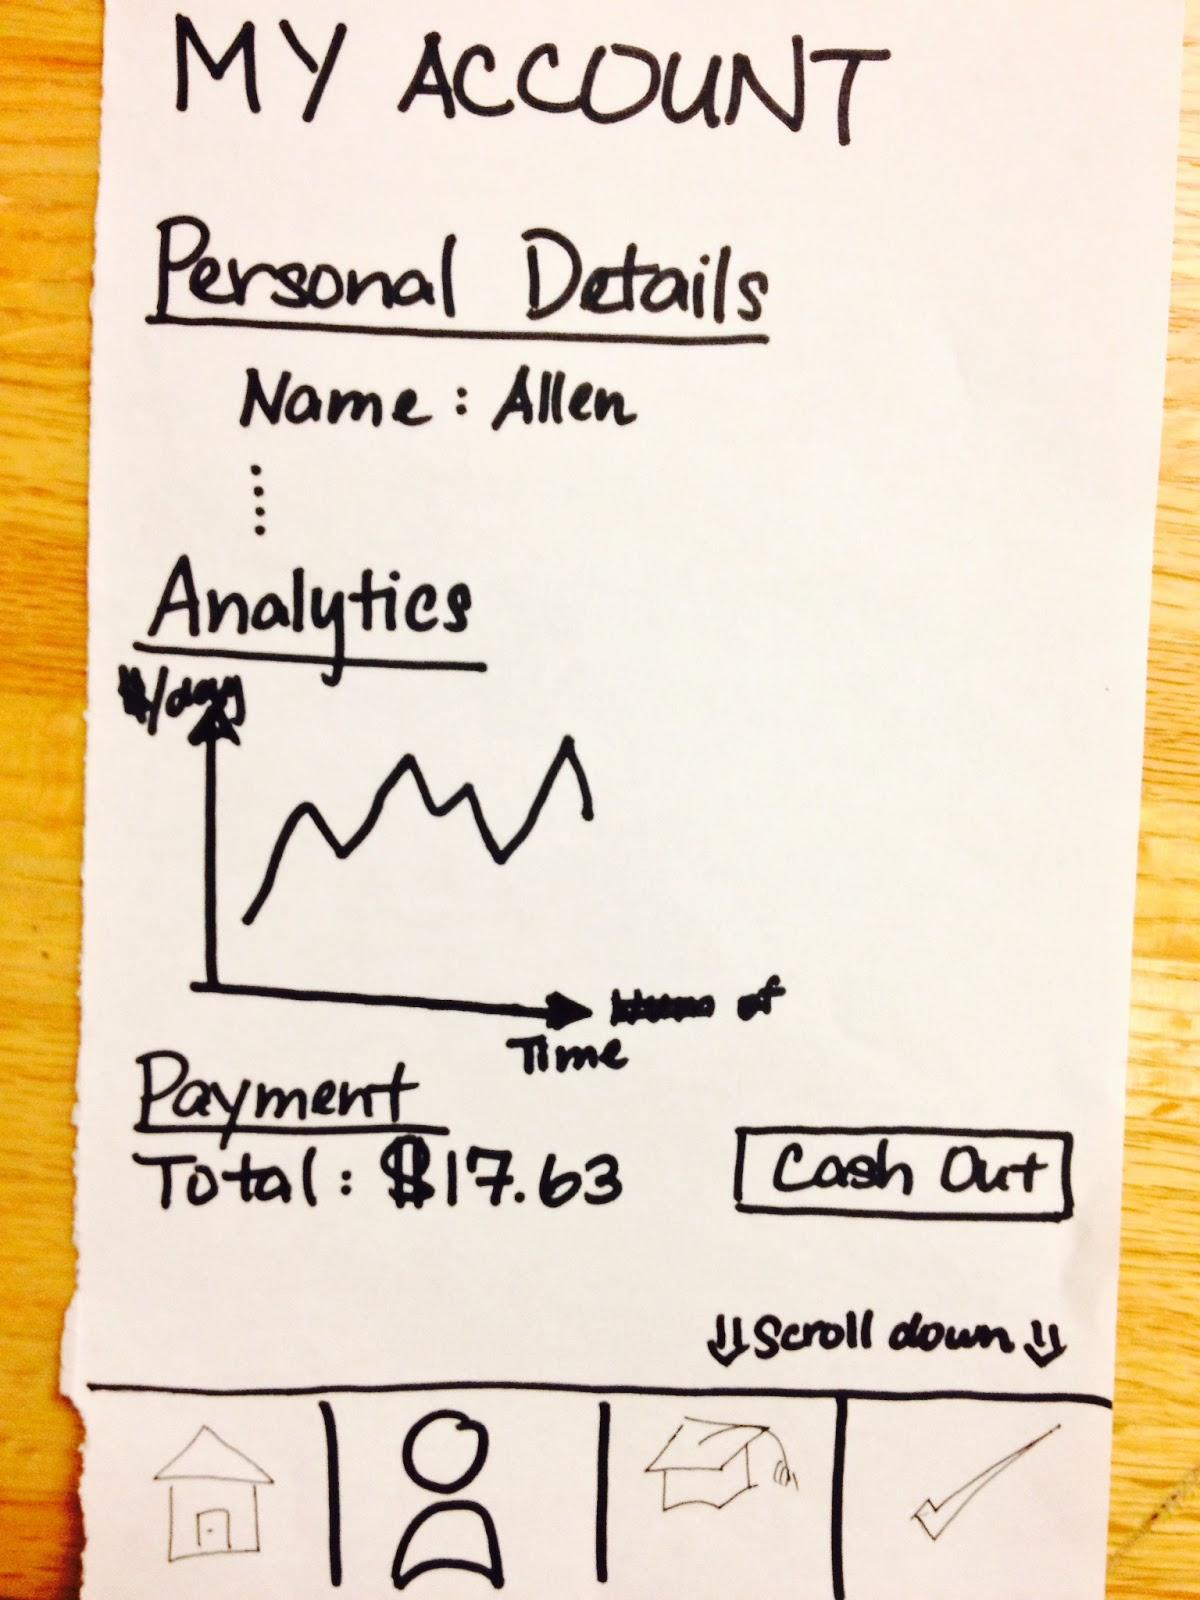 MY ACCOUNT
Personal Details
Name : Allen
Analytics
$/day
of
Time
Payment
Total : $17.63
Cash Out
Scroll down